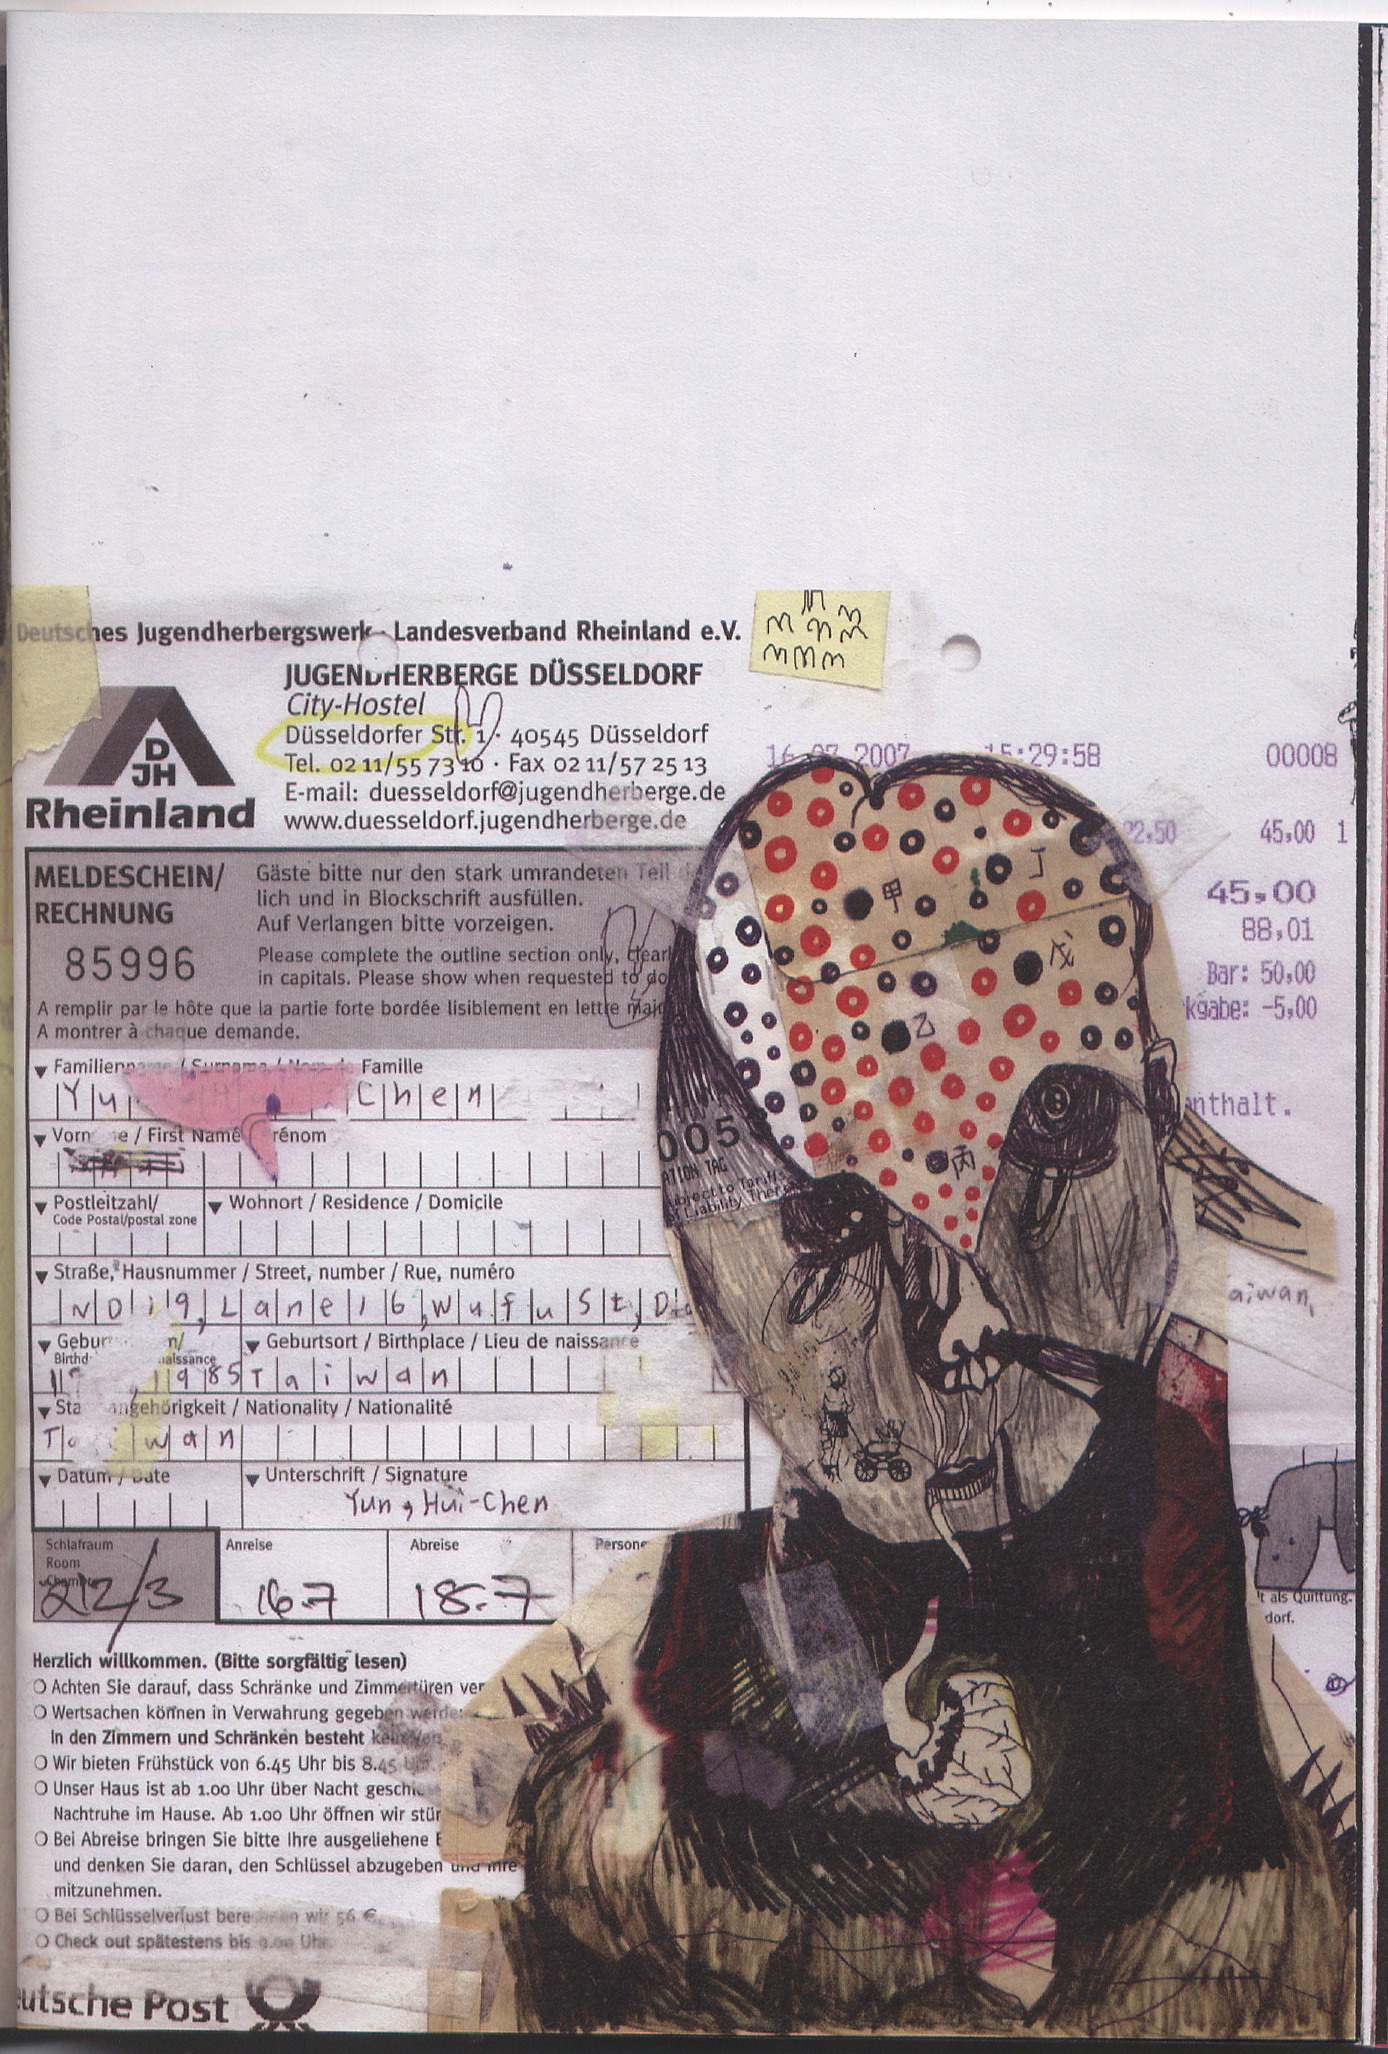 Deutsches Jugendherbergswerk · Landesverband Rheinland e.V.
JUGENDHERBERGE DÜSSELDORF
City-Hostel
Düsseldorfer Str. 1 · 40545 Düsseldorf
Tel. 02 11/55 73 10 · Fax 02 11/57 25 13
E-mail: duesseldorf@jugendherberge.de
www.duesseldorf.jugendherberge.de
D
JH
Rheinland
16.07.2007 15:29:58 00008
22.50 45,00 1
45,00
88,01
Bar: 50,00
kgabe: -5,00
nthalt.
MELDESCHEIN/
RECHNUNG
85996
Gäste bitte nur den stark umrandeten Teil
lich und in Blockschrift ausfüllen.
Auf Verlangen bitte vorzeigen.
Please complete the outline section only,
in capitals. Please show when requested to do
A remplir par le hôte que la partie forte bordée lisiblement en lettre
A montrer à chaque demande.
甲
丁
戊
乙
丙
005
ATION TAG
ubject to Tariffs
of Liability
Familienname / Surname / Nom de Famille
Yu Chen
/ First Name
rénom
Postleitzahl/
Code Postal/postal zone
Wohnort / Residence / Domicile
Straße, Hausnummer / Street, number / Rue, numéro
No 19, Lane 16, Wufu St,
aiwan,
Gebur
n/
Birthd
naissance
1985
Geburtsort / Birthplace / Lieu de naissance
Taiwan
Sta angehörigkeit / Nationality / Nationalité
Taiwan
Datum / Date
Unterschrift / Signature
Yung Hui-Chen
Schlafraum
Room
212/3
Anreise
16.7
Abreise
18.7
Persone
t als Quittung.
dorf.
Herzlich willkommen. (Bitte sorgfältig lesen)
Achten Sie darauf, dass Schränke und Zimmertüren ver
Wertsachen können in Verwahrung gegeben werde
In den Zimmern und Schränken besteht
Wir bieten Frühstück von 6.45 Uhr bis 8.45
Unser Haus ist ab 1.00 Uhr über Nacht geschl
Nachtruhe im Hause. Ab 1.00 Uhr öffnen wir stün
Bei Abreise bringen Sie bitte Ihre ausgeliehene
und denken Sie daran, den Schlüssel abzugeben und Ihre
mitzunehmen.
Bei Schlüsselverlust berechnen wir 56 €
Check out spätestens bis 9.00 Uhr.
eutsche Post